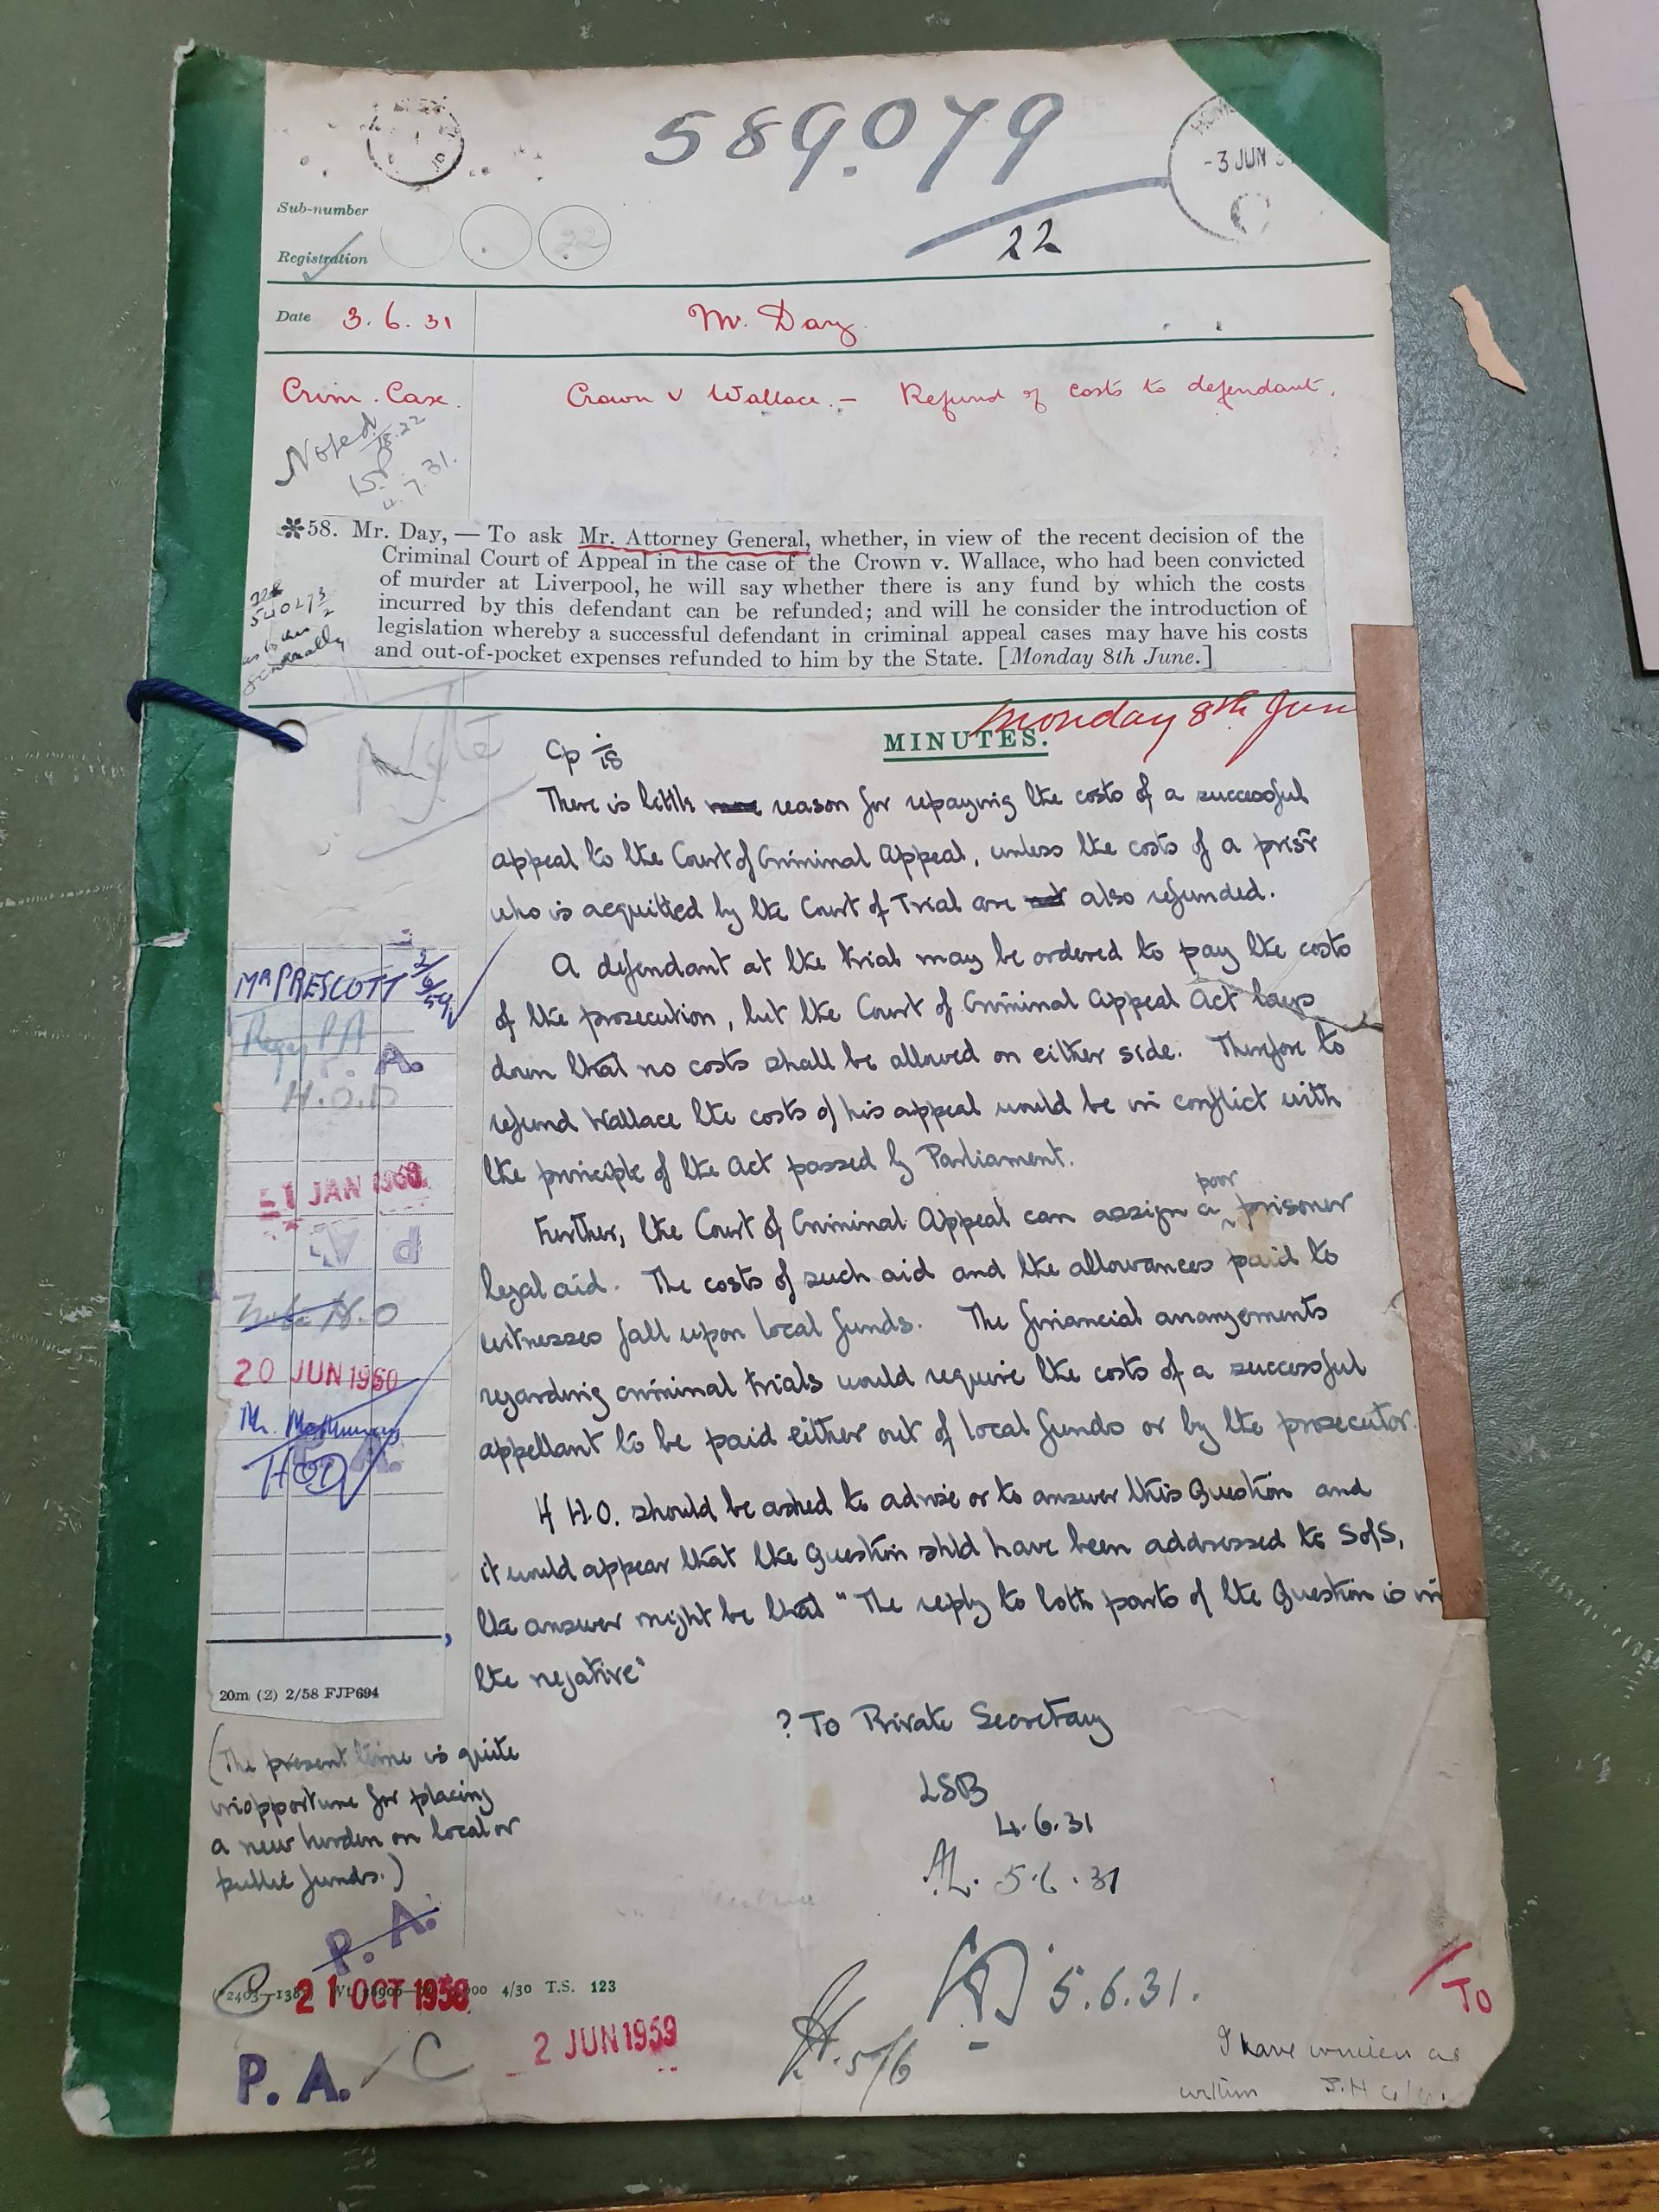 589.079
22
- 3 JUN
Sub-number
22
Registration
Date 3. 6. 31
Mr. Day.
Crim. Case.
Crown v Wallace. — Refund of costs to defendant.
Noted
4.7.31.
✻58. Mr. Day, — To ask Mr. Attorney General, whether, in view of the recent decision of the
Criminal Court of Appeal in the case of the Crown v. Wallace, who had been convicted
of murder at Liverpool, he will say whether there is any fund by which the costs
incurred by this defendant can be refunded; and will he consider the introduction of
legislation whereby a successful defendant in criminal appeal cases may have his costs
and out-of-pocket expenses refunded to him by the State. [Monday 8th June.]
as to this
generally
Monday 8th June
MINUTES.
Note
Cp /18
There is little reason for repaying the costs of a successful
appeal to the Court of Criminal Appeal, unless the costs of a prisr
who is acquitted by the Court of Trial are not also refunded.
A defendant at the trial may be ordered to pay the costs
of the prosecution, but the Court of Criminal Appeal Act lays
down that no costs shall be allowed on either side. Therefore to
refund Wallace the costs of his appeal would be in conflict with
the principle of the Act passed by Parliament.
Further, the Court of Criminal Appeal can assign a poor prisoner
legal aid. The costs of such aid and the allowances paid to
witnesses fall upon local funds. The financial arrangements
regarding criminal trials would require the costs of a successful
appellant to be paid either out of local funds or by the prosecutor.
If H.O. should be asked to advise or to answer this Question and
it would appear that the Question shld have been addressed to SofS,
the answer might be that "The reply to both parts of the Question is in
the negative"
? To Private Secretary
LSB
4.6.31
5.6.31
5.6.31.
5/6
MR PRESCOTT 2/6/59
P. A.
H.O.D
-1 JAN 1960
H.O
20 JUN 1960
HOD
20m (2) 2/58 FJP694
(The present time is quite
inopportune for placing
a new burden on local or
public funds.)
P. A.
21 OCT 1958
4/30 T.S. 123
P. A.
C
2 JUN 1959
TO
I have written as
within